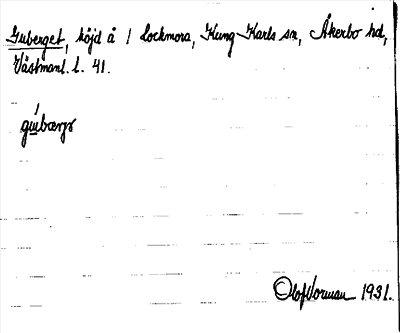 Guberget, höjd å 1 Lockmora, Kung Karls sn, Åkerbo hd,
Västmanl. l. 41.
gúbærjr
Olof Vorman 1931.